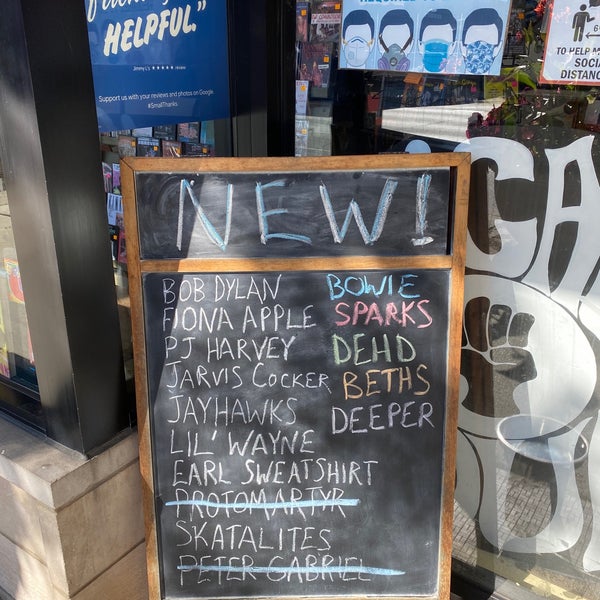 HELPFUL."
Jimmy L's ★★★★★ review
Support us with your reviews and photos on Google.
#SmallThanks
TO HELP
SOCIAL
DISTANC
NEW!
BOB DYLAN
FIONA APPLE
PJ HARVEY
JARVIS COCKER
JAYHAWKS
LIL' WAYNE
EARL SWEATSHIRT
PROTOMARTYR
SKATALITES
PETER GABRIEL
BOWIE
SPARKS
DEHD
BETHS
DEEPER